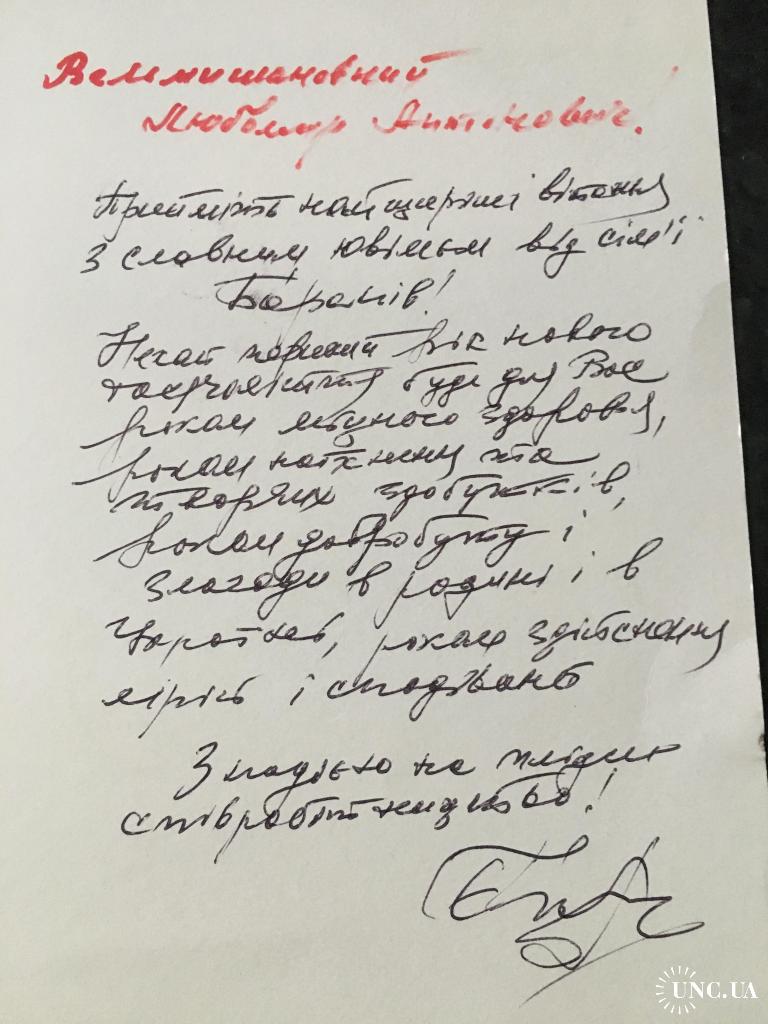 Вельмишановний
Любомир Антонович!
Прийміть найщиріші вітання
з славним ювілеєм від сім'ї
Баранів!
Нехай перший рік нового
тисячоліття буде для Вас
роком міцного здоров'я,
роком натхнення та
творчих здобутків,
роком добробуту і
злагоди в родині і в
Україні, роком здійснення
мрій і сподівань
З надією на плідне
співробітництво!
UNC.UA